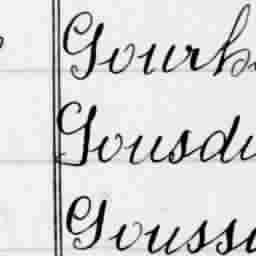 Gourb
Gousdu
Goussa